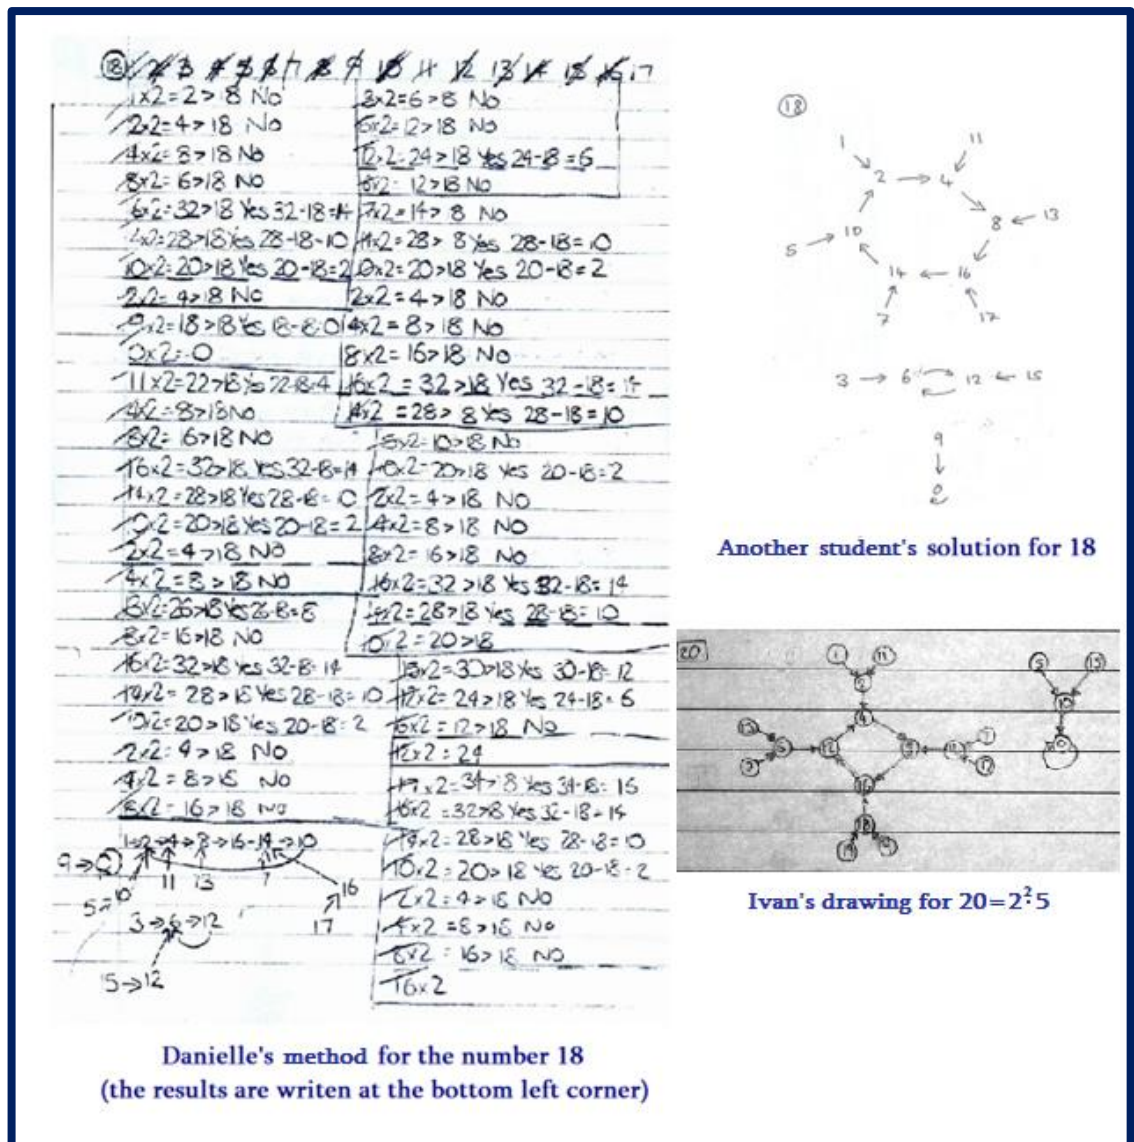 18 1 2 3 4 5 6 7 8 9 10 11 12 13 14 15 16 17
1x2=2>18 No
2x2=4>18 No
4x2=8>18 No
8x2=6>18 No
6x2=32>18 Yes 32-18=14
4x2=28>18 Yes 28-18=10
10x2=20>18 Yes 20-18=2
2x2=4>18 No
9x2=18>18 Yes 18-8=0
0x2=0
11x2=22>18 Yes 22-18=4
4x2=8>18 No
8x2=16>18 No
16x2=32>18 Yes 32-18=14
14x2=28>18 Yes 28-18=10
10x2=20>18 Yes 20-18=2
2x2=4>18 No
4x2=8>18 No
13x2=26>18 Yes 26-18=8
8x2=16>18 No
16x2=32>18 Yes 32-18=14
14x2=28>18 Yes 28-18=10
10x2=20>18 Yes 20-18=2
2x2=4>18 No
4x2=8>18 No
8x2=16>18 No
1→2→4→8→16→14→10
9→0
11 13 7 16
5→10
17
3→6→12
15→12
3x2=6>8 No
6x2=12>18 No
12x2=24>18 Yes 24-18=6
6x2=12>18 No
7x2=14>8 No
14x2=28>8 Yes 28-18=10
0x2=20>18 Yes 20-18=2
2x2=4>18 No
4x2=8>18 No
8x2=16>18 No
16x2=32>18 Yes 32-18=14
14x2=28>8 Yes 28-18=10
5x2=10>18 No
10x2=20>18 Yes 20-18=2
2x2=4>18 No
4x2=8>18 No
8x2=16>18 No
16x2=32>18 Yes 32-18=14
14x2=28>18 Yes 28-18=10
10x2=20>18
15x2=30>18 Yes 30-18=12
12x2=24>18 Yes 24-18=6
6x2=12>18 No
12x2=24
17x2=34>18 Yes 34-18=16
16x2=32>18 Yes 32-18=14
14x2=28>18 Yes 28-18=10
10x2=20>18 Yes 20-18=2
2x2=4>18 No
4x2=8>18 No
8x2=16>18 No
16x2
Danielle's method for the number 18
(the results are writen at the bottom left corner)
18
1 11
2 → 4
8 ← 13
5 → 10
14 ← 16
7 17
3 → 6 12 ← 15
9
0
Another student's solution for 18
20
1 11 5 15
2 10
4 0
16
18
Ivan's drawing for 20=2²·5